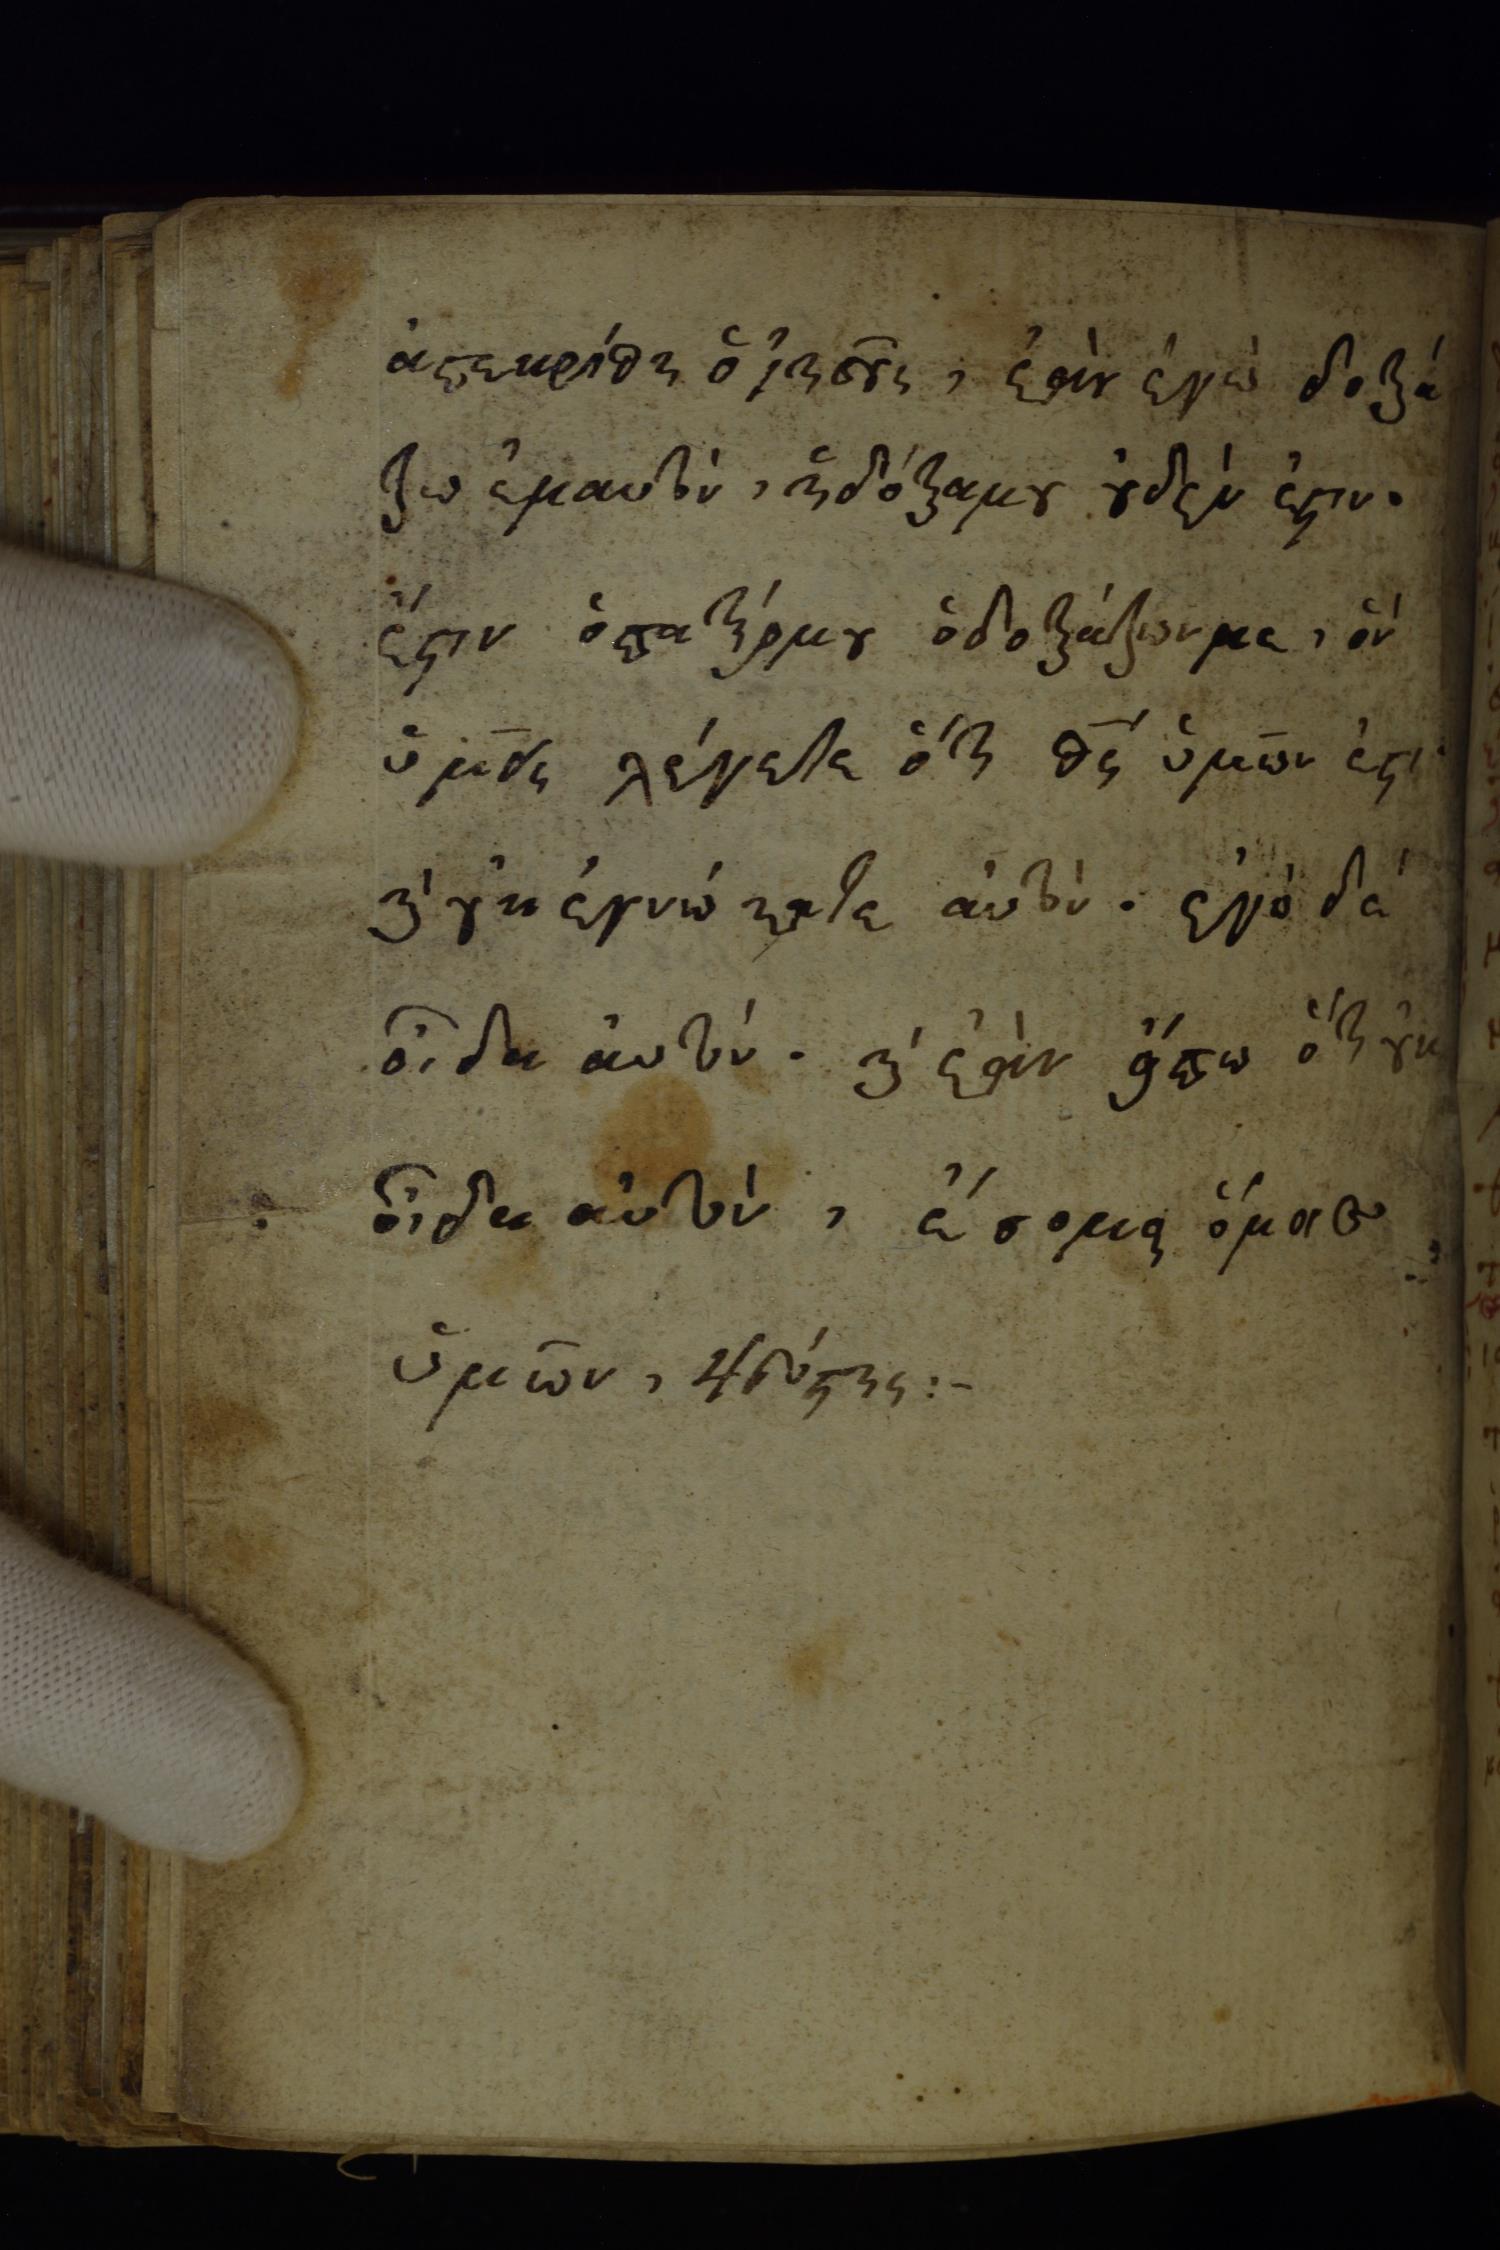 ἀπεκρίθη ὁ ἰησοῦς, ἐὰν ἐγὼ δοξά
ζω ἐμαυτὸν, ἡ δόξα μου οὐδὲν ἐστιν.
ἔστιν ὁ πατήρ μου ὁ δοξάζων με, ὃν
ὑμεῖς λέγετε ὅτι θς ὑμῶν ἐστι
κ οὐκ ἐγνώκατε αὐτὸν. ἐγὸ δέ
οἶδα αὐτὸν. κ ἐὰν εἴπω ὅτι οὐκ
οἶδα αὐτὸν, ἔσομαι ὅμοιος
ὑμῶν, ψεύστης:-